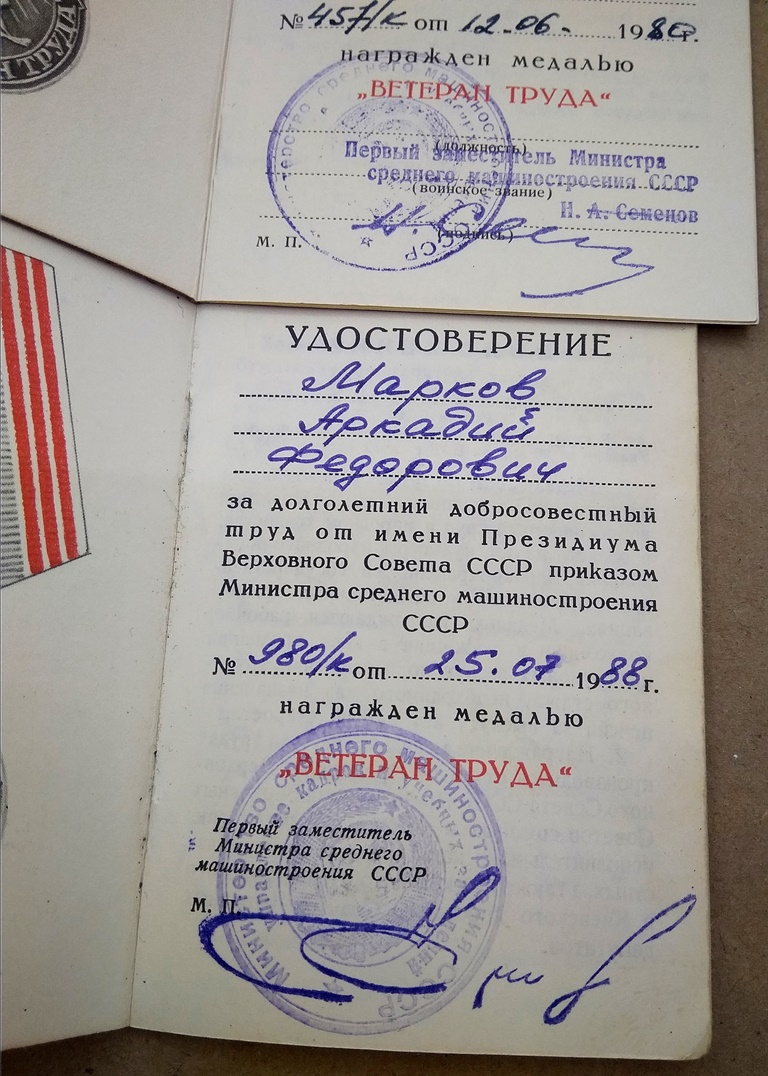 Н ТРУДА
№ 457/к от 12.06. 1980 г.
награжден медалью
„ВЕТЕРАН ТРУДА“
(должность)
Первый заместитель Министра
среднего машиностроения СССР
(воинское звание)
Н. А. Семенов
(подпись)
М. П.
УДОСТОВЕРЕНИЕ
Марков
Аркадий
Федорович
за долголетний добросовестный
труд от имени Президиума
Верховного Совета СССР приказом
Министра среднего машиностроения
СССР
№ 980/к от 25.07 1988 г.
награжден медалью
„ВЕТЕРАН ТРУДА“
Первый заместитель
Министра среднего
машиностроения СССР
М. П.
Министерство среднего машиностроения СССР
Управление кадров и учебных заведений